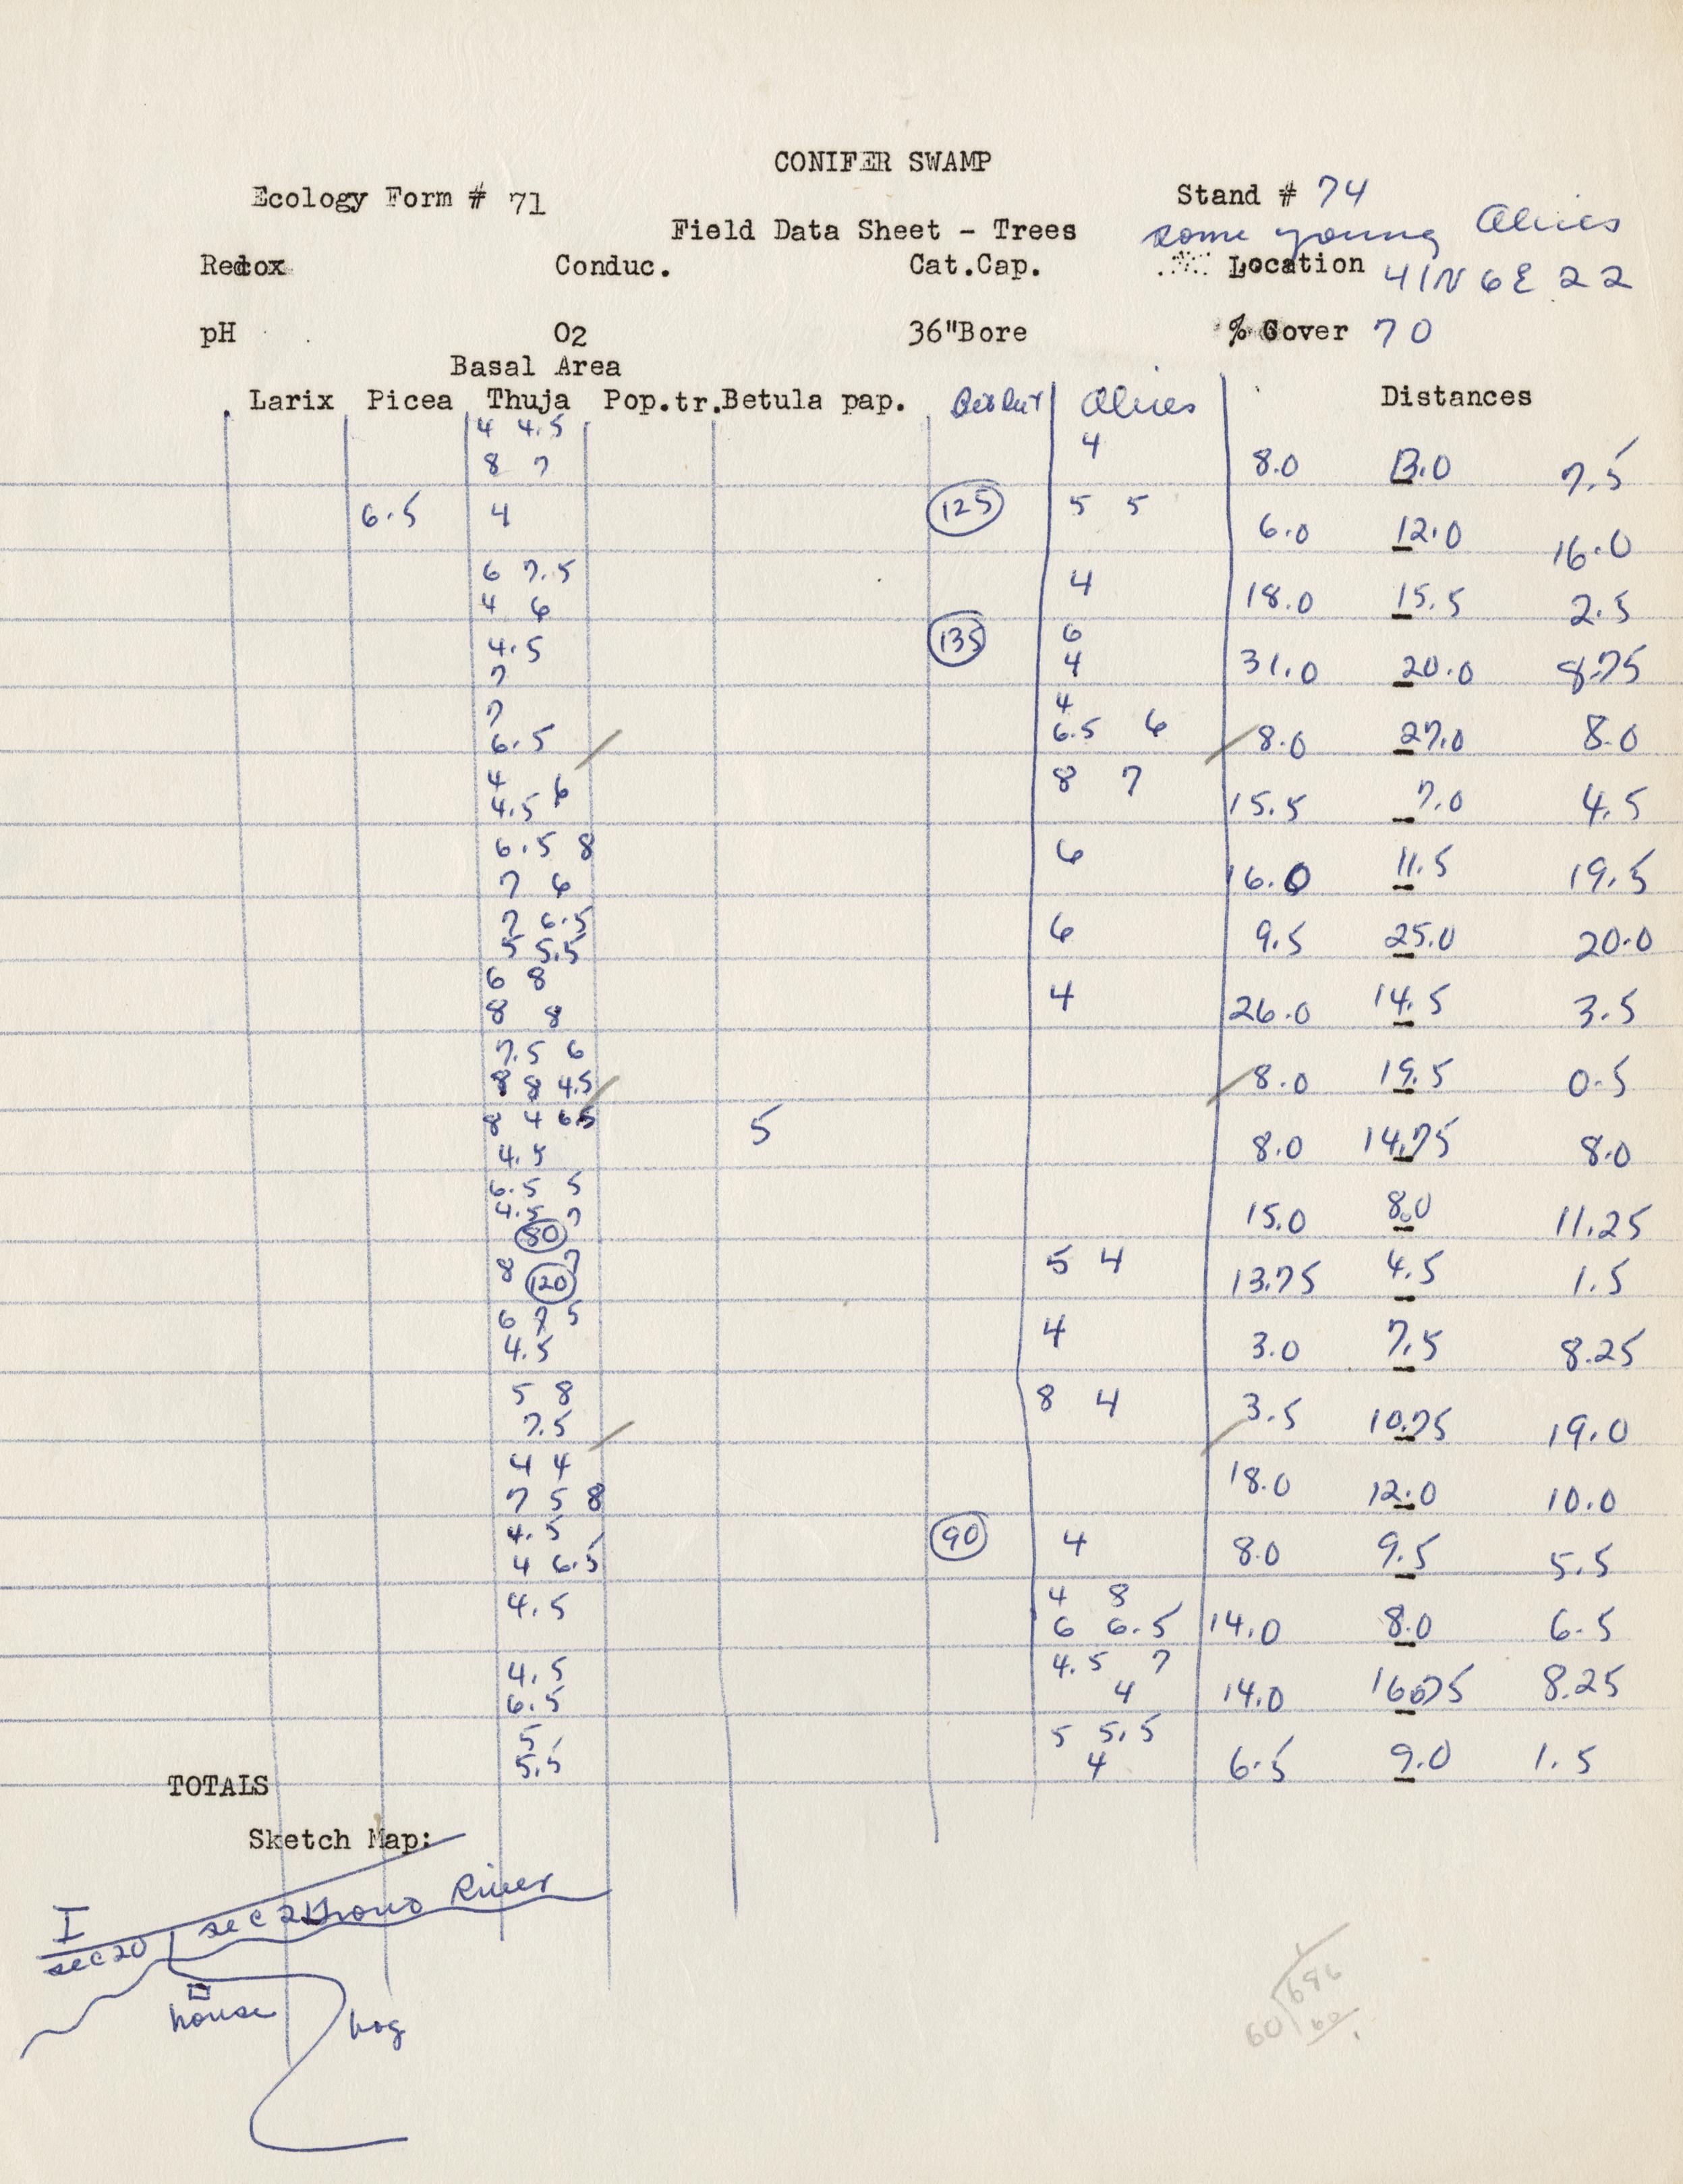 CONIFER SWAMP
Ecology Form # 71 Stand # 74
Field Data Sheet - Trees some young Abies
Redox Conduc. Cat.Cap. Location 41N 6E 22
pH O2 36"Bore % Cover 70
Basal Area
Larix Picea Thuja Pop.tr. Betula pap. Abies Distances
4 4.5 4
8 7 8.0 13.0 7.5
6.5 4 125 5 5 6.0 12.0 16.0
6 7.5 4
4 6 18.0 15.5 2.5
4.5 135 6
7 4 31.0 20.0 8.75
7 4
6.5 6.5 6 8.0 27.0 8.0
4 8 7
4.5 6 15.5 7.0 4.5
6.5 8 6
7 6 16.0 11.5 19.5
7 6.5 6
5 5.5 9.5 25.0 20.0
6 8 4
8 8 26.0 14.5 3.5
7.5 6
8 8 4.5 8.0 19.5 0.5
8 4 6.5 5
4.5 8.0 14.75 8.0
6.5 5
4.5 7 15.0 8.0 11.25
80
8 7 5 4
120 13.75 4.5 1.5
6 7 5 4
4.5 3.0 7.5 8.25
5 8 8 4
7.5 3.5 10.75 19.0
4 4
7 5 8 18.0 12.0 10.0
4.5 90 4
4 6.5 8.0 9.5 5.5
4.5 4 8
6 6.5 14.0 8.0 6.5
4.5 4.5 7
6.5 4 14.0 16.75 8.25
5 5 5.5
5.5 4 6.5 9.0 1.5
TOTALS
Sketch Map:
I sec 21 River
sec 20
house bog
696
60 60